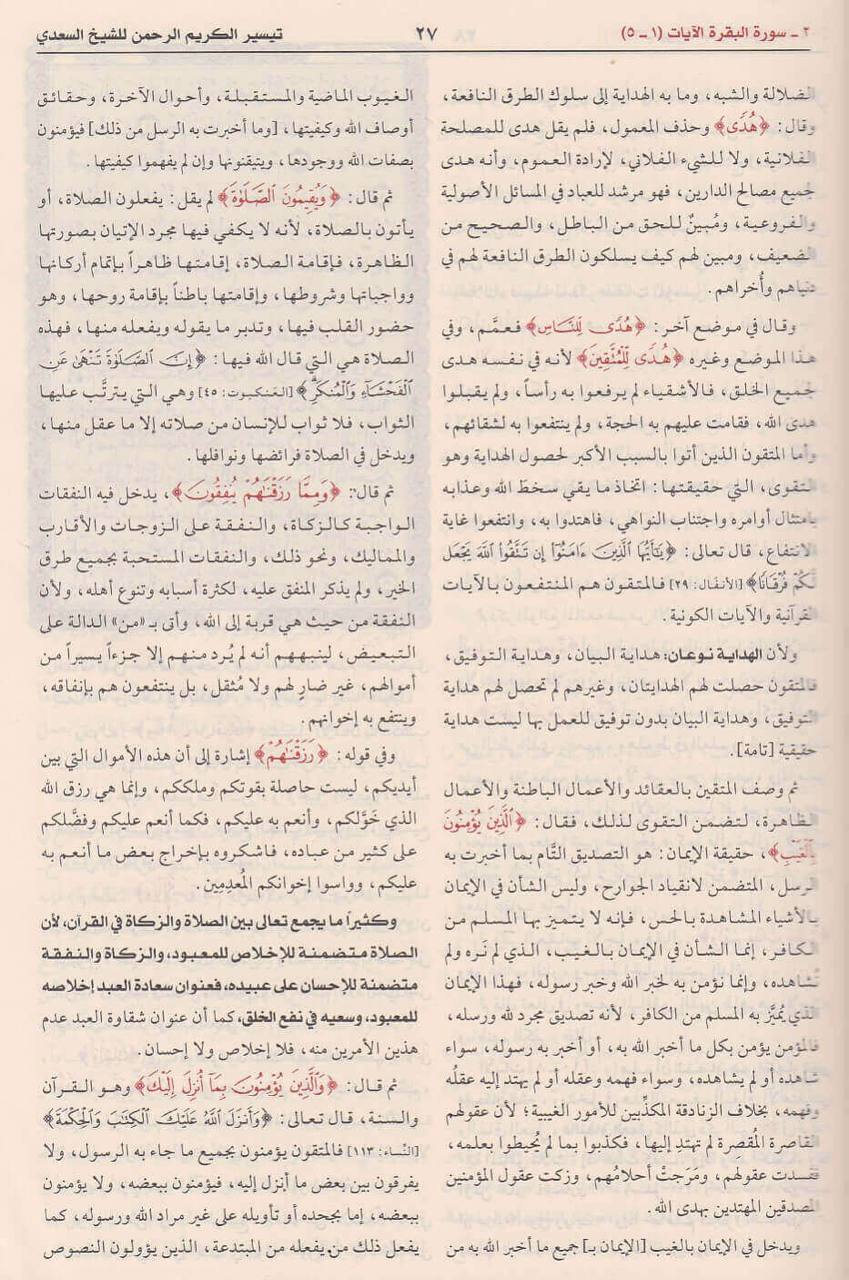 ٢ - سورة البقرة الآيات (١ - ٥)
٢٧
تيسير الكريم الرحمن للشيخ السعدي
الضلالة والشبه، وما به الهداية إلى سلوك الطرق النافعة،
وقال: ﴿هُدًى﴾ وحذف المعمول، فلم يقل هدى للمصلحة
الفلانية، ولا للشيء الفلاني، لإرادة العموم، وأنه هدى
جميع مصالح الدارين، فهو مرشد للعباد في المسائل الأصولية
والفروعية، ومُبينٌ للحق من الباطل، والصحيح من
الضعيف، ومبين لهم كيف يسلكون الطرق النافعة لهم في
دنياهم وأُخراهم.
وقال في موضع آخر: ﴿هُدًى لِلنَّاسِ﴾ فعمَّم، وفي
هذا الموضع وغيره ﴿هُدًى لِلْمُتَّقِينَ﴾ لأنه في نفسه هدى
جميع الخلق، فالأشقياء لم يرفعوا به رأساً، ولم يقبلوا
هدى الله، فقامت عليهم به الحجة، ولم ينتفعوا به لشقائهم،
وأما المتقون الذين أتوا بالسبب الأكبر لحصول الهداية وهو
التقوى، التي حقيقتها: اتخاذ ما يقي سخط الله وعذابه
بامتثال أوامره واجتناب النواهي، فاهتدوا به، وانتفعوا غاية
الانتفاع، قال تعالى: ﴿يَٰٓأَيُّهَا ٱلَّذِينَ ءَامَنُوٓا۟ إِن تَتَّقُوا۟ ٱللَّهَ يَجْعَل
لَّكُمْ فُرْقَانًا﴾ [الأنفال: ٢٩] فالمتقون هم المنتفعون بالآيات
القرآنية والآيات الكونية.
ولأن الهداية نوعان: هداية البيان، وهداية التوفيق،
فالمتقون حصلت لهم الهدايتان، وغيرهم لم تحصل لهم هداية
التوفيق، وهداية البيان بدون توفيق للعمل بها ليست هداية
حقيقية [تامة].
ثم وصف المتقين بالعقائد والأعمال الباطنة والأعمال
الظاهرة، لتضمن التقوى لذلك، فقال: ﴿ٱلَّذِينَ يُؤْمِنُونَ
بِٱلْغَيْبِ﴾، حقيقة الإيمان: هو التصديق التَّام بما أخبرت به
الرسل، المتضمن لانقياد الجوارح، وليس الشأن في الإيمان
بالأشياء المشاهدة بالحس، فإنه لا يتميز بها المسلم من
الكافر، إنما الشأن في الإيمان بالغيب، الذي لم نَره ولم
نشاهده، وإنما نؤمن به لخبر الله وخبر رسوله، فهذا الإيمان
الذي يُميَّز به المسلم من الكافر، لأنه تصديق مجرد لله ورسله،
فالمؤمن يؤمن بكل ما أخبر الله به، أو أخبر به رسوله، سواء
شاهده أو لم يشاهده، وسواء فهمه وعقله أو لم يهتد إليه عقلُه
وفهمه، بخلاف الزنادقة المكذِّبين للأمور الغيبية؛ لأن عقولهم
القاصرة المُقصِرة لم تهتدِ إليها، فكذبوا بما لم يُحيطوا بعلمه،
ففسدت عقولهم، ومَرَجتْ أحلامُهم، وزكت عقول المؤمنين
المصدقين المهتدين بهدى الله.
ويدخل في الإيمان بالغيب [الإيمان بـ] جميع ما أخبر الله به من
الغيوب الماضية والمستقبلة، وأحوال الآخرة، وحقائق
أوصاف الله وكيفيتها، [وما أخبرت به الرسل من ذلك] فيؤمنون
بصفات الله ووجودها، ويتيقنونها وإن لم يفهموا كيفيتها.
ثم قال: ﴿وَيُقِيمُونَ ٱلصَّلَوٰةَ﴾ لم يقل: يفعلون الصلاة، أو
يأتون بالصلاة، لأنه لا يكفي فيها مجرد الإتيان بصورتها
الظاهرة، فإقامة الصلاة، إقامتها ظاهراً بإتمام أركانها
وواجباتها وشروطها، وإقامتها باطناً بإقامة روحها، وهو
حضور القلب فيها، وتدبر ما يقوله ويفعله منها، فهذه
الصلاة هي التي قال الله فيها: ﴿إِنَّ ٱلصَّلَوٰةَ تَنْهَىٰ عَنِ
ٱلْفَحْشَآءِ وَٱلْمُنكَرِ﴾ [العنكبوت: ٤٥] وهي التي يترتَّب عليها
الثواب، فلا ثواب للإنسان من صلاته إلا ما عقل منها،
ويدخل في الصلاة فرائضها ونوافلها.
ثم قال: ﴿وَمِمَّا رَزَقْنَٰهُمْ يُنفِقُونَ﴾، يدخل فيه النفقات
الواجبة كالزكاة، والنفقة على الزوجات والأقارب
والمماليك، ونحو ذلك، والنفقات المستحبة بجميع طرق
الخير، ولم يذكر المنفق عليه، لكثرة أسبابه وتنوع أهله، ولأن
النفقة من حيث هي قربة إلى الله، وأتى بـ «من» الدالة على
التبعيض، لينبههم أنه لم يُرد منهم إلا جزءاً يسيراً من
أموالهم، غير ضارٍ لهم ولا مُثقل، بل ينتفعون هم بإنفاقه،
وينتفع به إخوانهم.
وفي قوله: ﴿رَزَقْنَٰهُمْ﴾ إشارة إلى أن هذه الأموال التي بين
أيديكم، ليست حاصلة بقوتكم وملككم، وإنما هي رزق الله
الذي خَوَّلكم، وأنعم به عليكم، فكما أنعم عليكم وفضَّلكم
على كثير من عباده، فاشكروه بإخراج بعض ما أنعم به
عليكم، وواسوا إخوانكم المُعدِمِين.
وكثيراً ما يجمع تعالى بين الصلاة والزكاة في القرآن، لأن
الصلاة متضمنة للإخلاص للمعبود، والزكاة والنفقة
متضمنة للإحسان على عبيده، فعنوان سعادة العبد إخلاصه
للمعبود، وسعيه في نفع الخلق، كما أن عنوان شقاوة العبد عدم
هذين الأمرين منه، فلا إخلاص ولا إحسان.
ثم قال: ﴿وَٱلَّذِينَ يُؤْمِنُونَ بِمَآ أُنزِلَ إِلَيْكَ﴾ وهو القرآن
والسنة، قال تعالى: ﴿وَأَنزَلَ ٱللَّهُ عَلَيْكَ ٱلْكِتَٰبَ وَٱلْحِكْمَةَ﴾
[النساء: ١١٣] فالمتقون يؤمنون بجميع ما جاء به الرسول، ولا
يفرقون بين بعض ما أنزل إليه، فيؤمنون ببعضه، ولا يؤمنون
ببعضه، إما بجحده أو تأويله على غير مراد الله ورسوله، كما
يفعل ذلك من يفعله من المبتدعة، الذين يؤولون النصوص